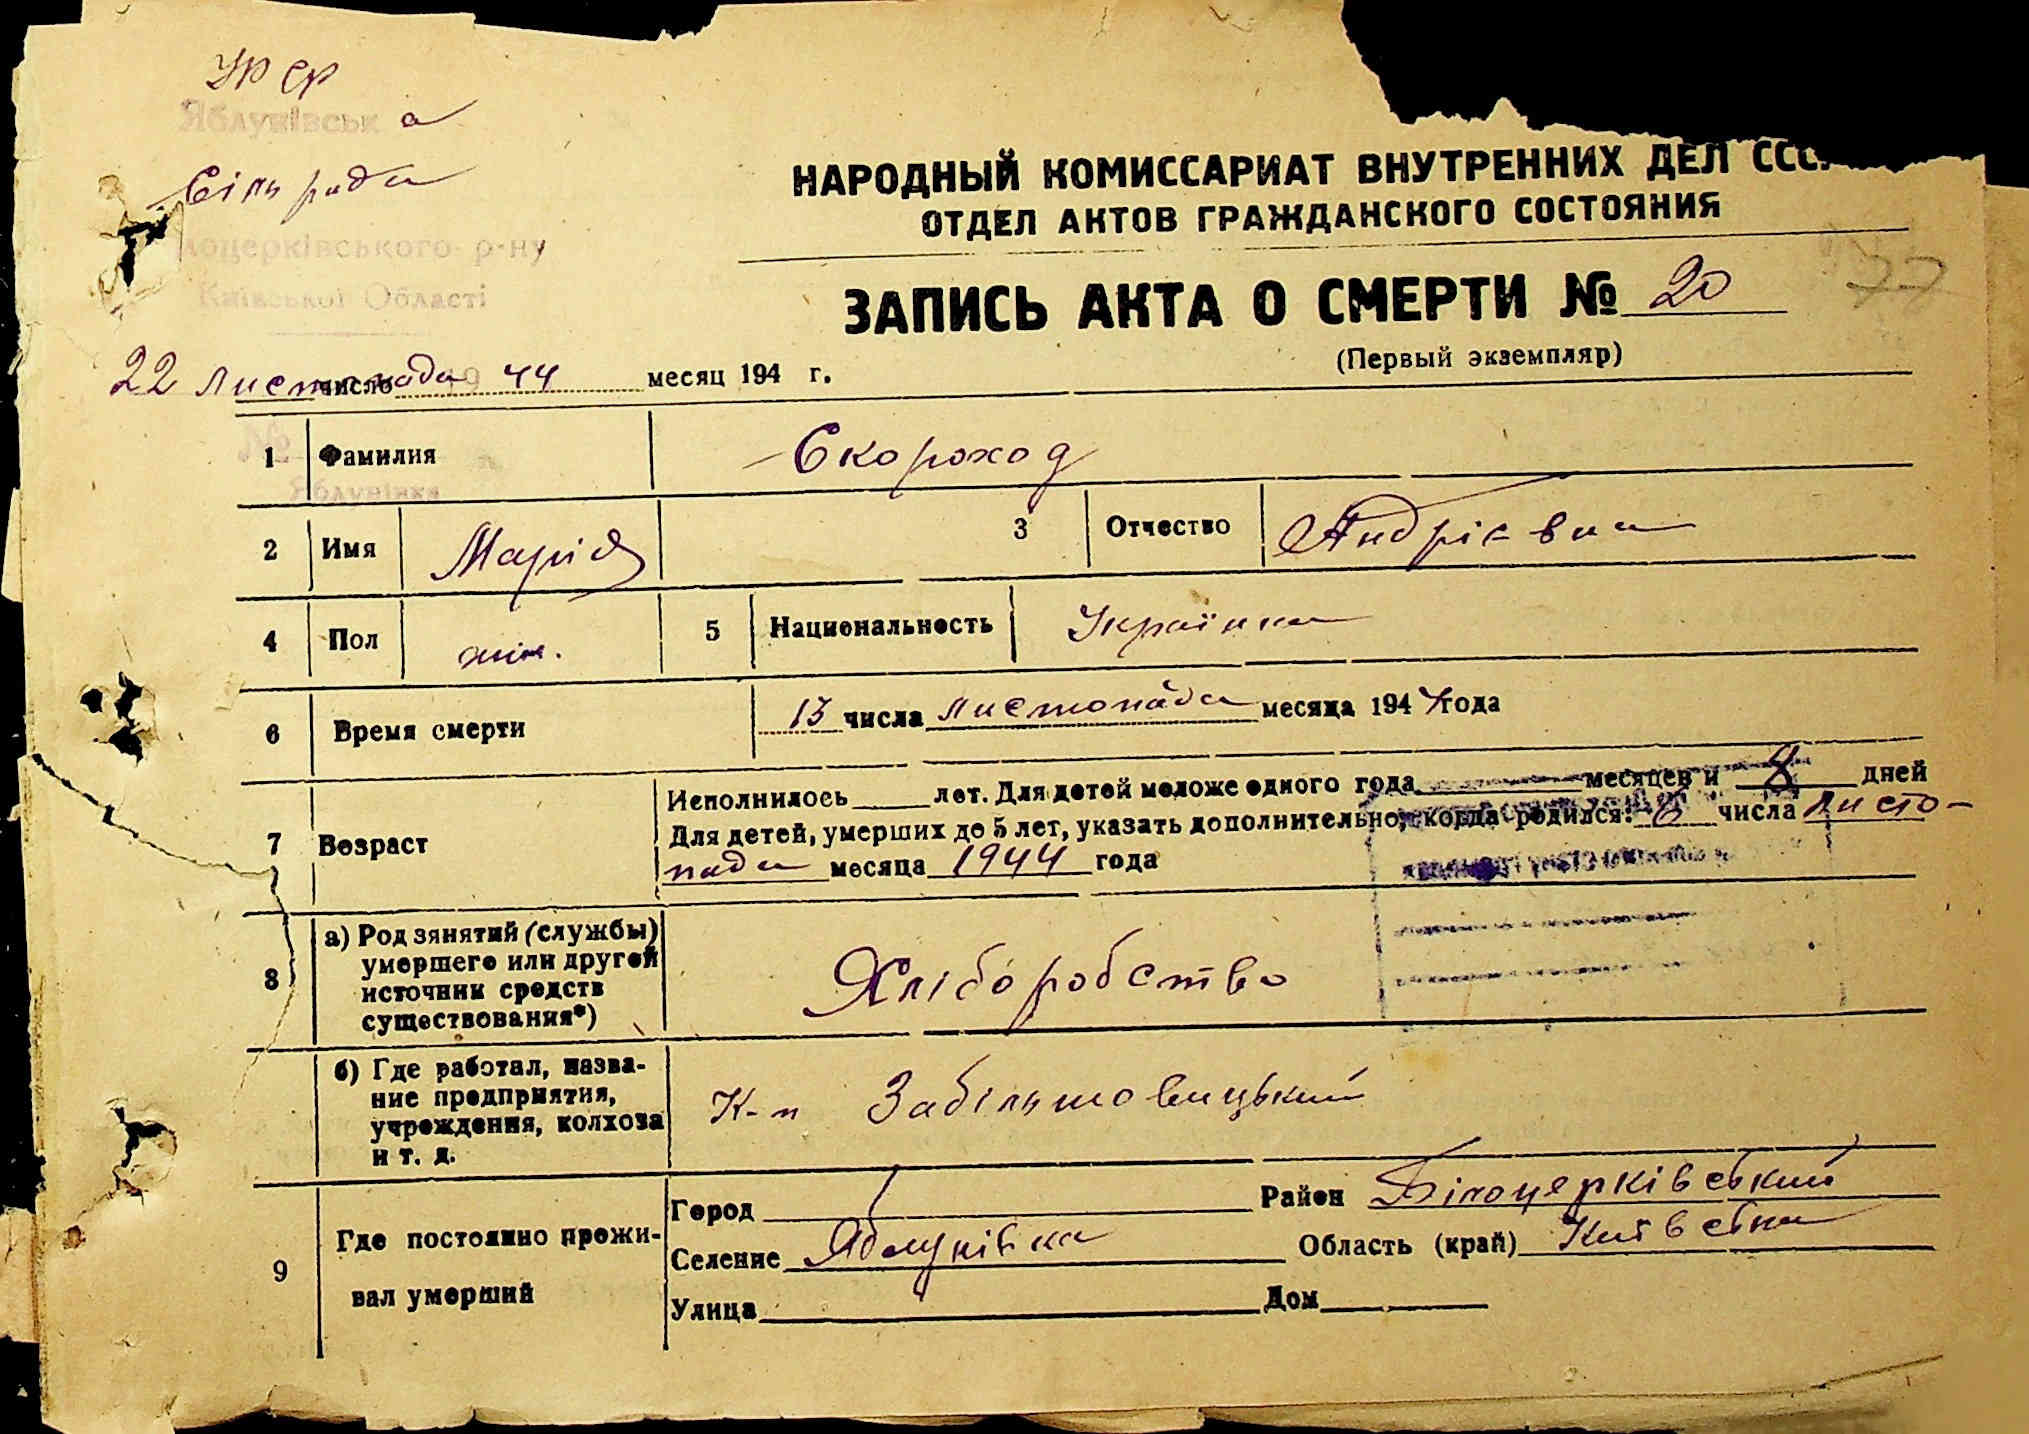 УРСР
Яблунівська
Сільрада
лоцерківського р-ну
Київської Області
НАРОДНЫЙ КОМИССАРИАТ ВНУТРЕННИХ ДЕЛ ССС
ОТДЕЛ АКТОВ ГРАЖДАНСКОГО СОСТОЯНИЯ
77
ЗАПИСЬ АКТА О СМЕРТИ № 20
(Первый экземпляр)
22 листопада число 19 44 месяц 194 г.
№
Яблунівка
1 Фамилия Скороход
2 Имя Марія 3 Отчество Андріевна
4 Пол жін. 5 Национальность Українка
6 Время смерти 13 числа листопада месяца 194 4 года
7 Возраст
Исполнилось лет. Для детей моложе одного года месяцев и 8 дней
Для детей, умерших до 5 лет, указать дополнительно, когда родился: 6 числа листо-
пада месяца 1944 года
8 а) Род занятий (службы)
умершего или другой
источник средств
существования*)
Хліборобство
б) Где работал, назва-
ние предприятия,
учреждения, колхоза
и т. д.
К-п Забільшовицький
9 Где постоянно прожи-
вал умерший
Город Район Білоцерківський
Селение Яблунівка Область (край) Київська
Улица Дом